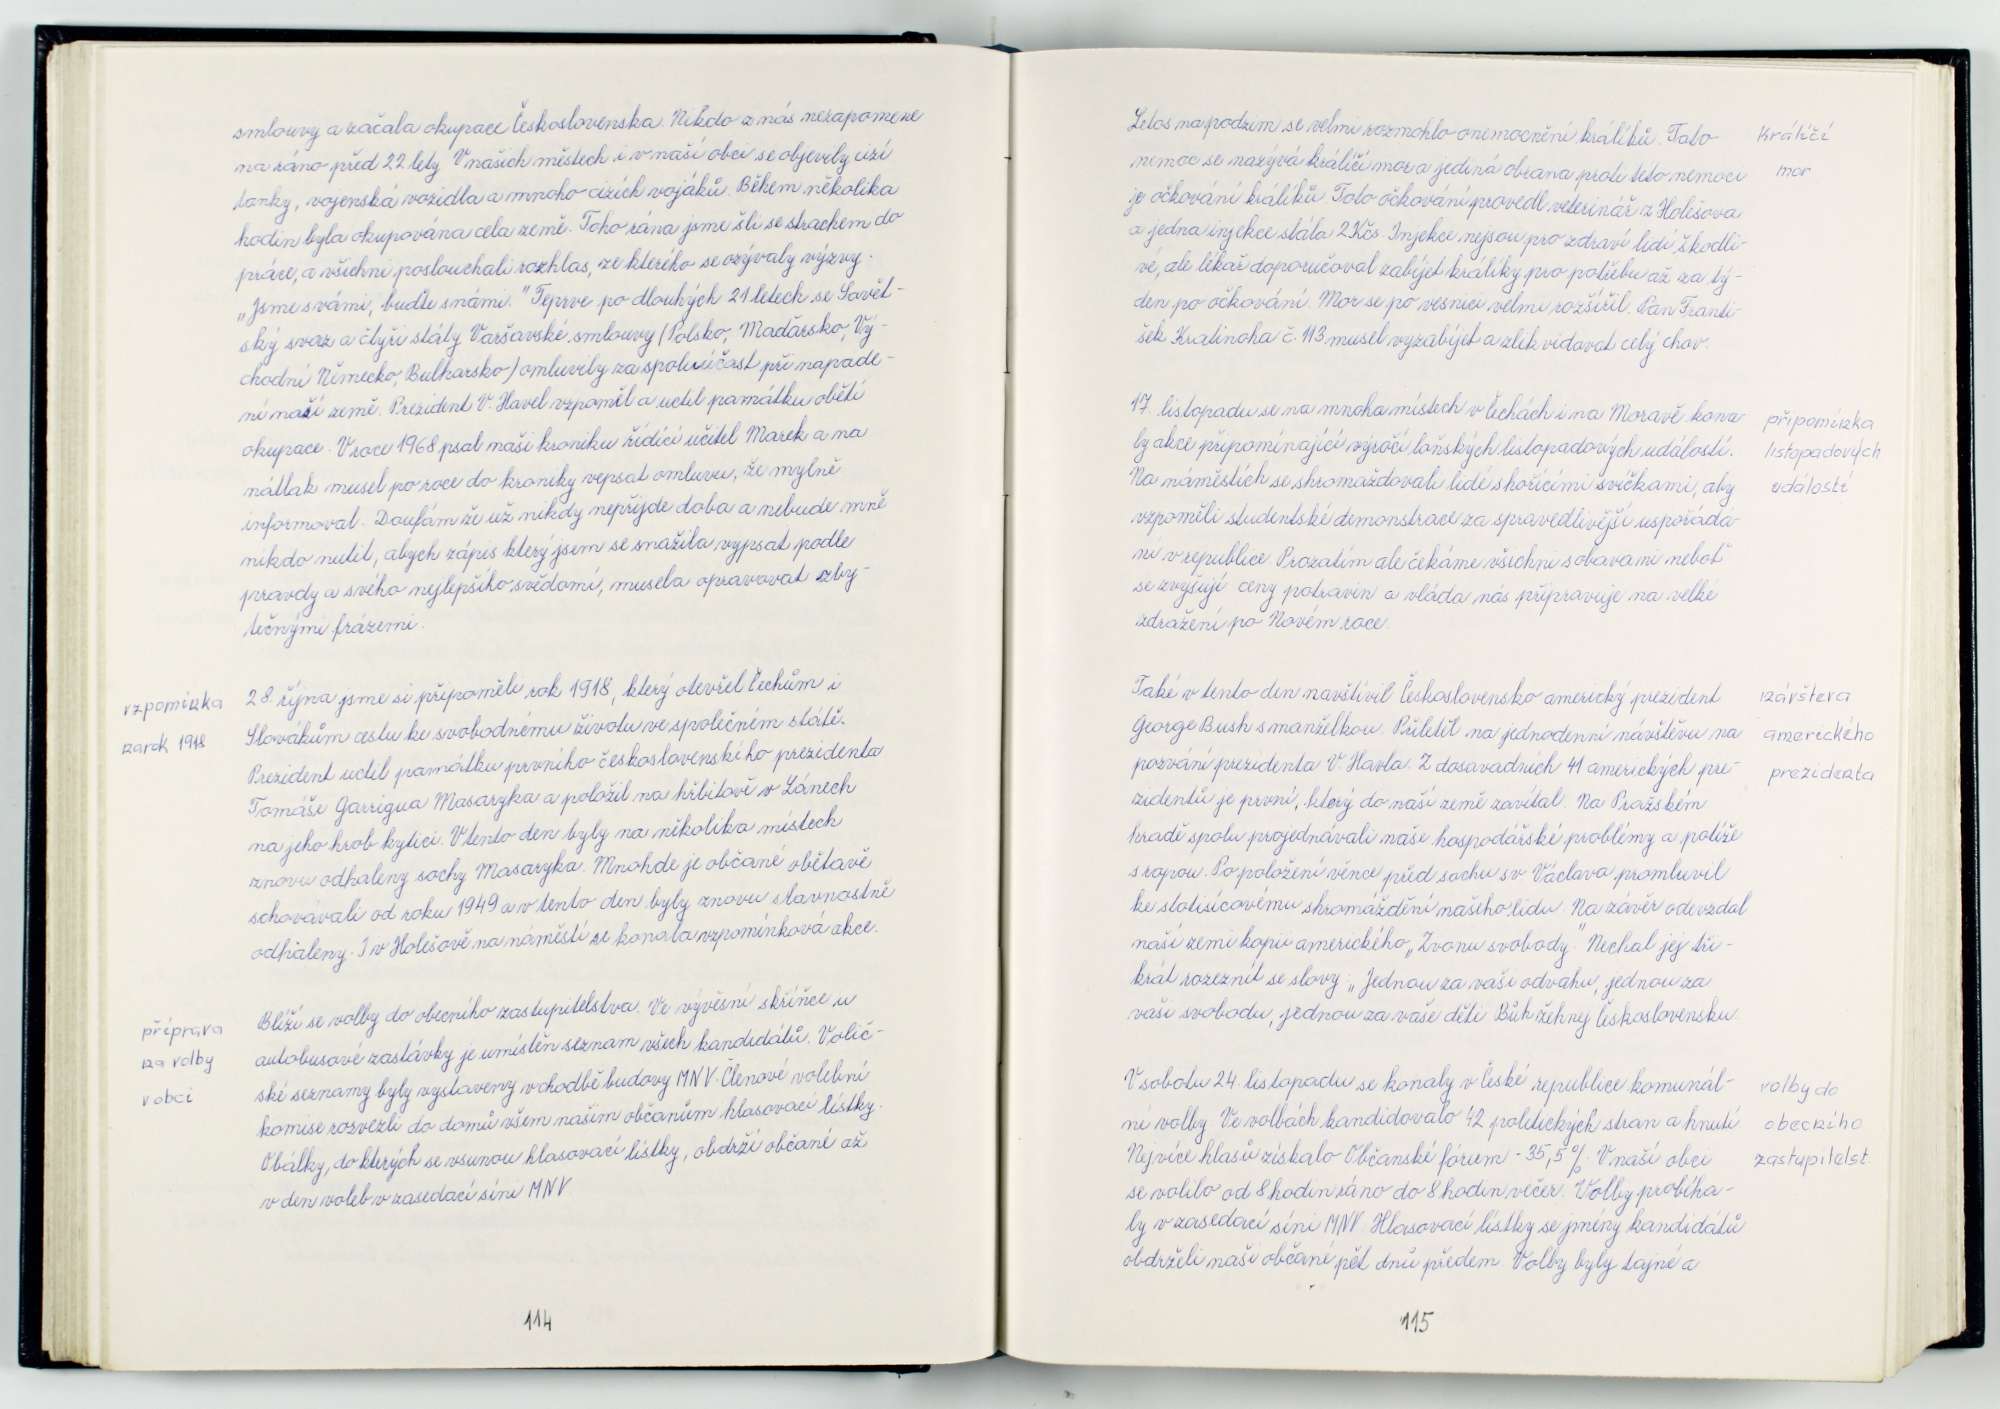 smlouvy a začala okupace Československa. Nikdo z nás nezapomene
na ráno před 22 lety. V našich městech i v naší obci se objevily cizí
tanky, vojenská vozidla a mnoho cizích vojáků. Během několika
hodin byla okupována cela země. Toho rána jsme šli se strachem do
práce, a všichni poslouchali rozhlas, ze kterého se ozývaly výzvy.
„Jsme s vámi, buďte s námi." Teprve po dlouhých 21 letech se Sovět-
ský svaz a čtyři státy Varšavské smlouvy (Polsko, Maďarsko, Vý-
chodní Německo, Bulharsko) omluvily za spoluúčast při napade-
ní naší země. Prezident V. Havel vzpoměl a uctil památku obětí
okupace. V roce 1968 psal naši kroniku řídící učitel Marek a na
nátlak musel po roce do kroniky vepsat omluvu, že mylně
informoval. Doufám že už nikdy nepřijde doba a nebude mně
nikdo nutit, abych zápis který jsem se snažila vypsat podle
pravdy a svého nejlepšího svědomí, musela opravovat zby-
tečnými frázemi.
vzpomínka
na rok 1918
28. října jsme si připoměli rok 1918, který otevřel Čechům i
Slovákům cestu ke svobodnému životu ve společném státě.
Prezident uctil památku prvního československého prezidenta
Tomáše Garrigua Masaryka a položil na hřbitově v Lánech
na jeho hrob kytici. V tento den byly na několika místech
znovu odhaleny sochy Masaryka. Mnohde je občané obětavě
schovávali od roku 1949 a v tento den byly znovu slavnostně
odhaleny. I v Holešově na náměstí se konala vzpomínková akce.
příprava
na volby
v obci
Blíží se volby do obecního zastupitelstva. Ve vývěsní skříňce u
autobusové zastávky je umístěn seznam všech kandidátů. Volič-
ské seznamy byly vystaveny v chodbě budovy MNV. Členové volební
komise rozvezli do domů všem našim občanům hlasovací lístky.
Obálky, do kterých se vsunou hlasovací lístky, obdrží občané až
v den voleb v zasedací síni MNV
114
Letos na podzim se velmi rozmohlo onemocnění králíků. Tato
nemoc se nazývá králičí mor a jediná obrana proti této nemoci
je očkování králíků. Toto očkování provedl veterinář z Holešova
a jedna injekce stála 2 Kčs. Injekce nejsou pro zdraví lidí škodli-
vé, ale lékař doporučoval zabíjet králíky pro potřebu až za tý-
den po očkování. Mor se po vesnici velmi rozšířil. Pan Franti-
šek Kratinoha č. 113 musel vyzabíjet a zlikvidovat celý chov.
Králičí
mor
17. listopadu se na mnoha místech v Čechách i na Moravě kona-
ly akce připomínající výročí loňských listopadových událostí.
Na náměstích se shromažďovali lidé s hořícími svíčkami, aby
vzpoměli studentské demonstrace za spravedlivější uspořádá-
ní v republice. Prozatím ale čekáme všichni s obavami neboť
se zvyšují ceny potravin a vláda nás připravuje na velké
zdražení po Novém roce.
připomínka
listopadových
událostí
Také v tento den navštívil Československo americký prezident
George Bush s manželkou. Přiletěl na jednodenní návštěvu na
pozvání prezidenta V. Havla. Z dosavadních 41 amerických pre-
zidentů je první, který do naší země zavítal. Na Pražském
hradě spolu projednávali naše hospodářské problémy a potíže
s ropou. Po položení věnce před sochu sv. Václava promluvil
ke stotisícovému shromáždění našeho lidu. Na závěr odevzdal
naší zemi kopii amerického „Zvonu svobody." Nechal jej tři-
krát rozeznít se slovy: „Jednou za vaši odvahu, jednou za
vaši svobodu, jednou za vaše děti. Bůh žehnej Československu.
návštěva
amerického
prezidenta
V sobotu 24. listopadu se konaly v České republice komunál-
ní volby. Ve volbách kandidovalo 42 politických stran a hnutí
Nejvíce hlasů získalo Občanské fórum - 35,5 %. V naší obci
se volilo od 8 hodin ráno do 8 hodin večer. Volby probíha-
ly v zasedací síni MNV. Hlasovací lístky se jmény kandidátů
obdrželi naši občané pět dnů předem. Volby byly tajné a
volby do
obecního
zastupitelst.
115